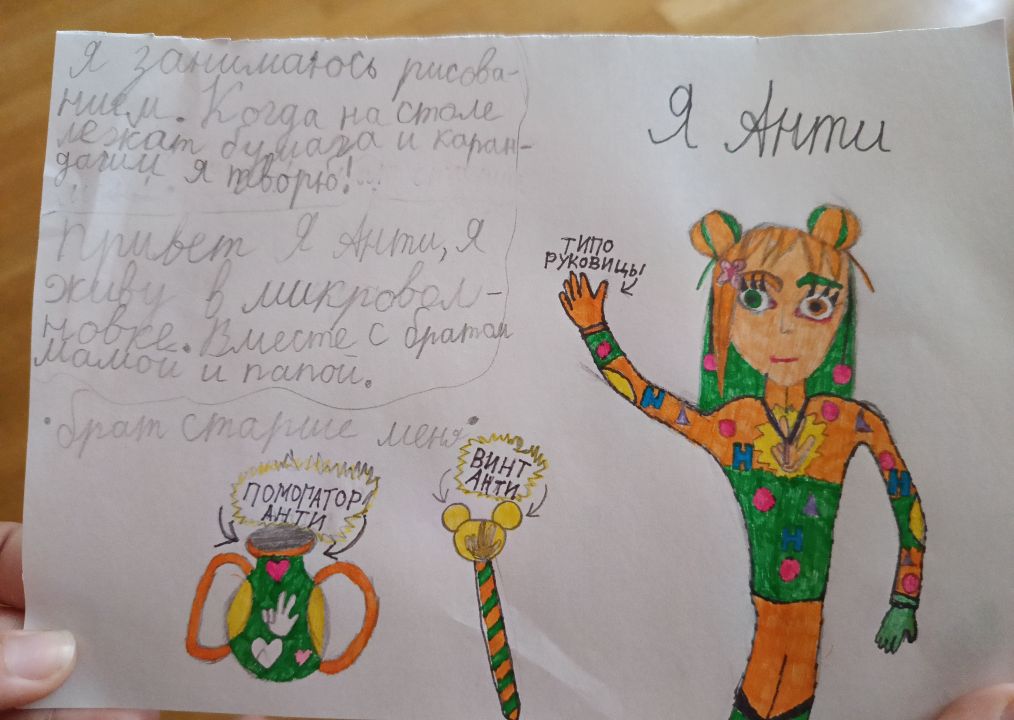 Я занимаюсь рисова-
нием. Когда на столе
лежат бумага и каран-
даши я творю!...
Привет Я Анти, я
живу в микровол-
новке. Вместе с братом
мамой и папой.
• брат старше меня •
Я Анти
ТИПО
РУКОВИЦЫ
ПОМОГАТОР
АНТИ
ВИНТ
АНТИ
Н
Н
Н
Н